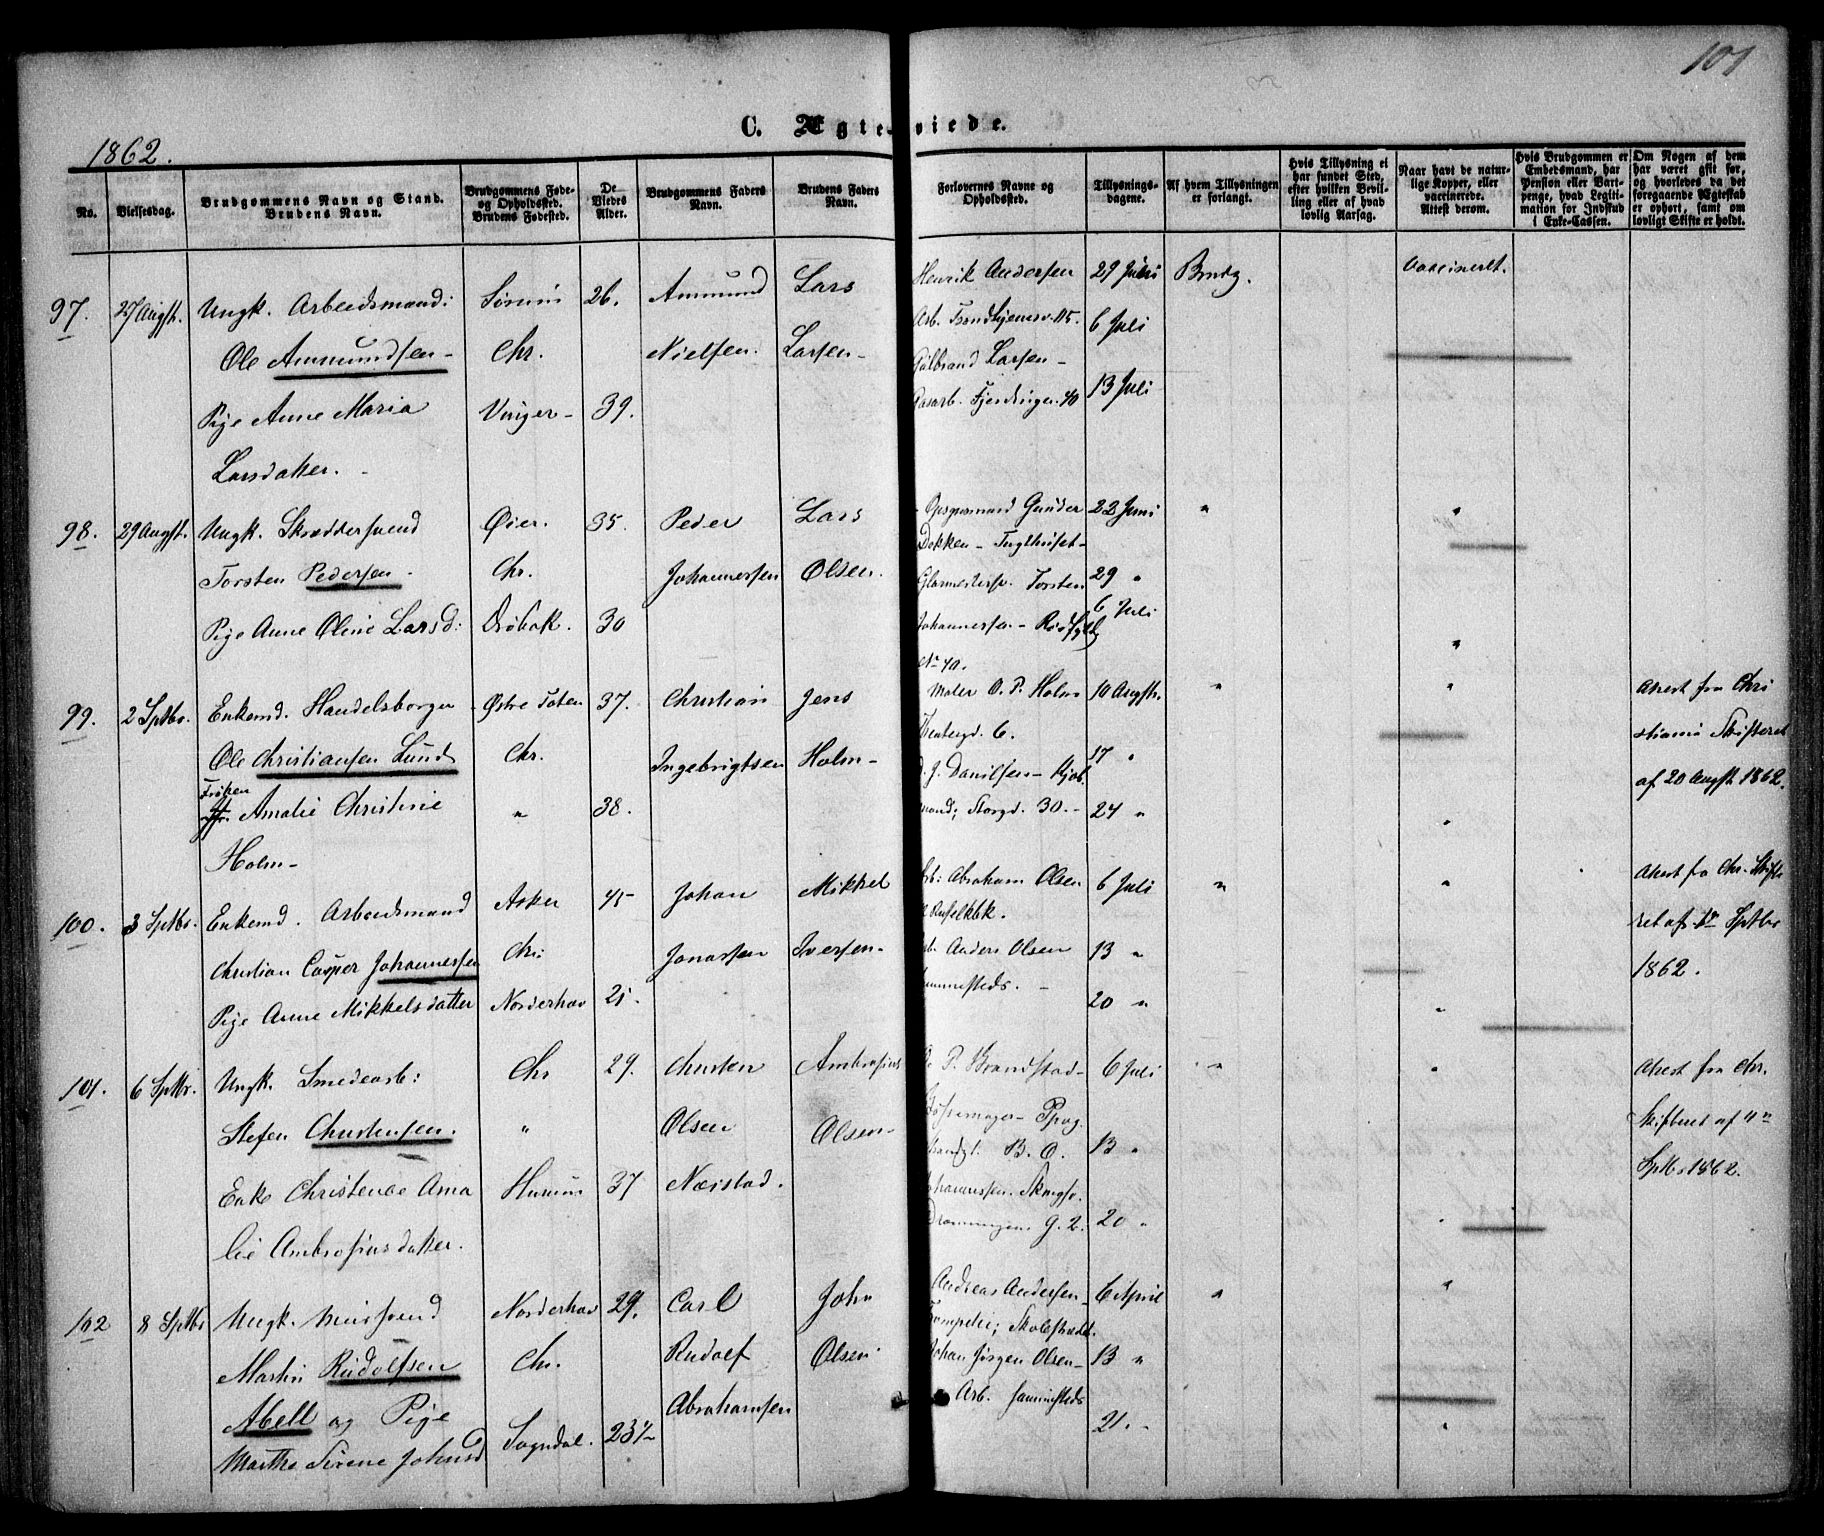 101
1862.
C. Ægteviede.
No.
Vielsesdag.
Brudgommens Navn og Stand.
Brudens Navn.
Brudgommens Føde-
og Opholdssted.
Brudens Fødested.
De
Viedes
Alder.
Brudgommens Faders
Navn.
Brudens Faders
Navn.
Forlovernes Navne og
Opholdssted.
Tillysnings-
dagene.
Af hvem Tillysningen
er forlangt.
Hvis Tillysning ei
har fundet Sted,
efter hvilken Bevil-
ling eller af hvad
lovlig Aarsag.
Naar havt de natur-
lige Kopper, eller
vaccinerede.
Attest derom.
Hvis Brudgommen er
Embedsmand, har
Pension eller Vart-
penge, hvad Legiti-
mation for Indskud
i Enke-Cassen.
Om Nogen af dem
har været gift før,
og hvorledes da det
foregaaende Ægteskab
er ophørt, samt om
lovligt Skifte er holdt.
97. 27 Augst. Ungk. Arbeidsmand: Sørum 26. Ammund Lars Henrik Andersen 29 Juni Brudg. Vaccineret.
Arb. Trondhjemsv. 115. 6 Juli
Ole Ammundsen Chr. Nielsen. Larsen Gulbrand Larsen
Pige Anne Maria Vinger 39. Fjerdingen 40 13 Juli
Larsdatter.
98. 29 Augst. Ungk. Skrædersvend Øier. 35. Peder Lars Opsynsmand Gunder 22 Juni "
Dokken - Tugthuset
Torsten Pedersen Chr. Johannersen Olsen. Glarmestersv. Torsten 29 "
Pige Anne Oline Larsd: Drøbak. 30 Johannersen 6 Juli
No 40.
99. 2 Sptbr. Enkemd. Handelsborger Østre Toten 37. Christian Jens Maler O. P. Holm 10 Augst. " Attest fra Chri
Ole Christiansen Lund Chr. Ingebrigtsen Holm 6. 17 " stiania Skifteret
Frøken J. Danilsen - Kjøb af 20 Augst 1862.
Amalie Christine " 38. mand; Storgd. 30. 24 "
Holm
100. 3 Sptbr. Enkemd. Arbeidsmand Asker 45 Johan Mikkel Arb: Abraham Olsen 6 Juli " Attest fra Chr. Skifte
ret af 1ste Sptbr
Christian Casper Johannersen Chr: Jonassen Iversen Anders Olsen 13 " 1862.
Pige Anne Mikkelsdatter Norderhov 25. 20 "
101. 6 Sptbr. Ungk. Smedearb: Chr 29. Christen Ambrosius P. Brandstad 6 Juli " Attest fra Chr.
Stefen Christensen. " Olsen Olsen B. O. 13 " Skifteret af 4de
Enke Christence Ama Hurum 37 Næistad. Johannessen. Sptbr 1862.
lie Ambrosiusdatter. Dronningens G. 2. 20 "
102 8 Sptbr Ungk. Norderhov 29. Carl John Andreas Andersen 6 April "
Skolestrædet.
Martin Rudolfsen Chr. Rudolf Olsen Johan Jørgen Olsen 13 "
Abell og Pige Abrahamsen Arb.
Marthe Sirene Johnsd Sogndal. 23½ 21.